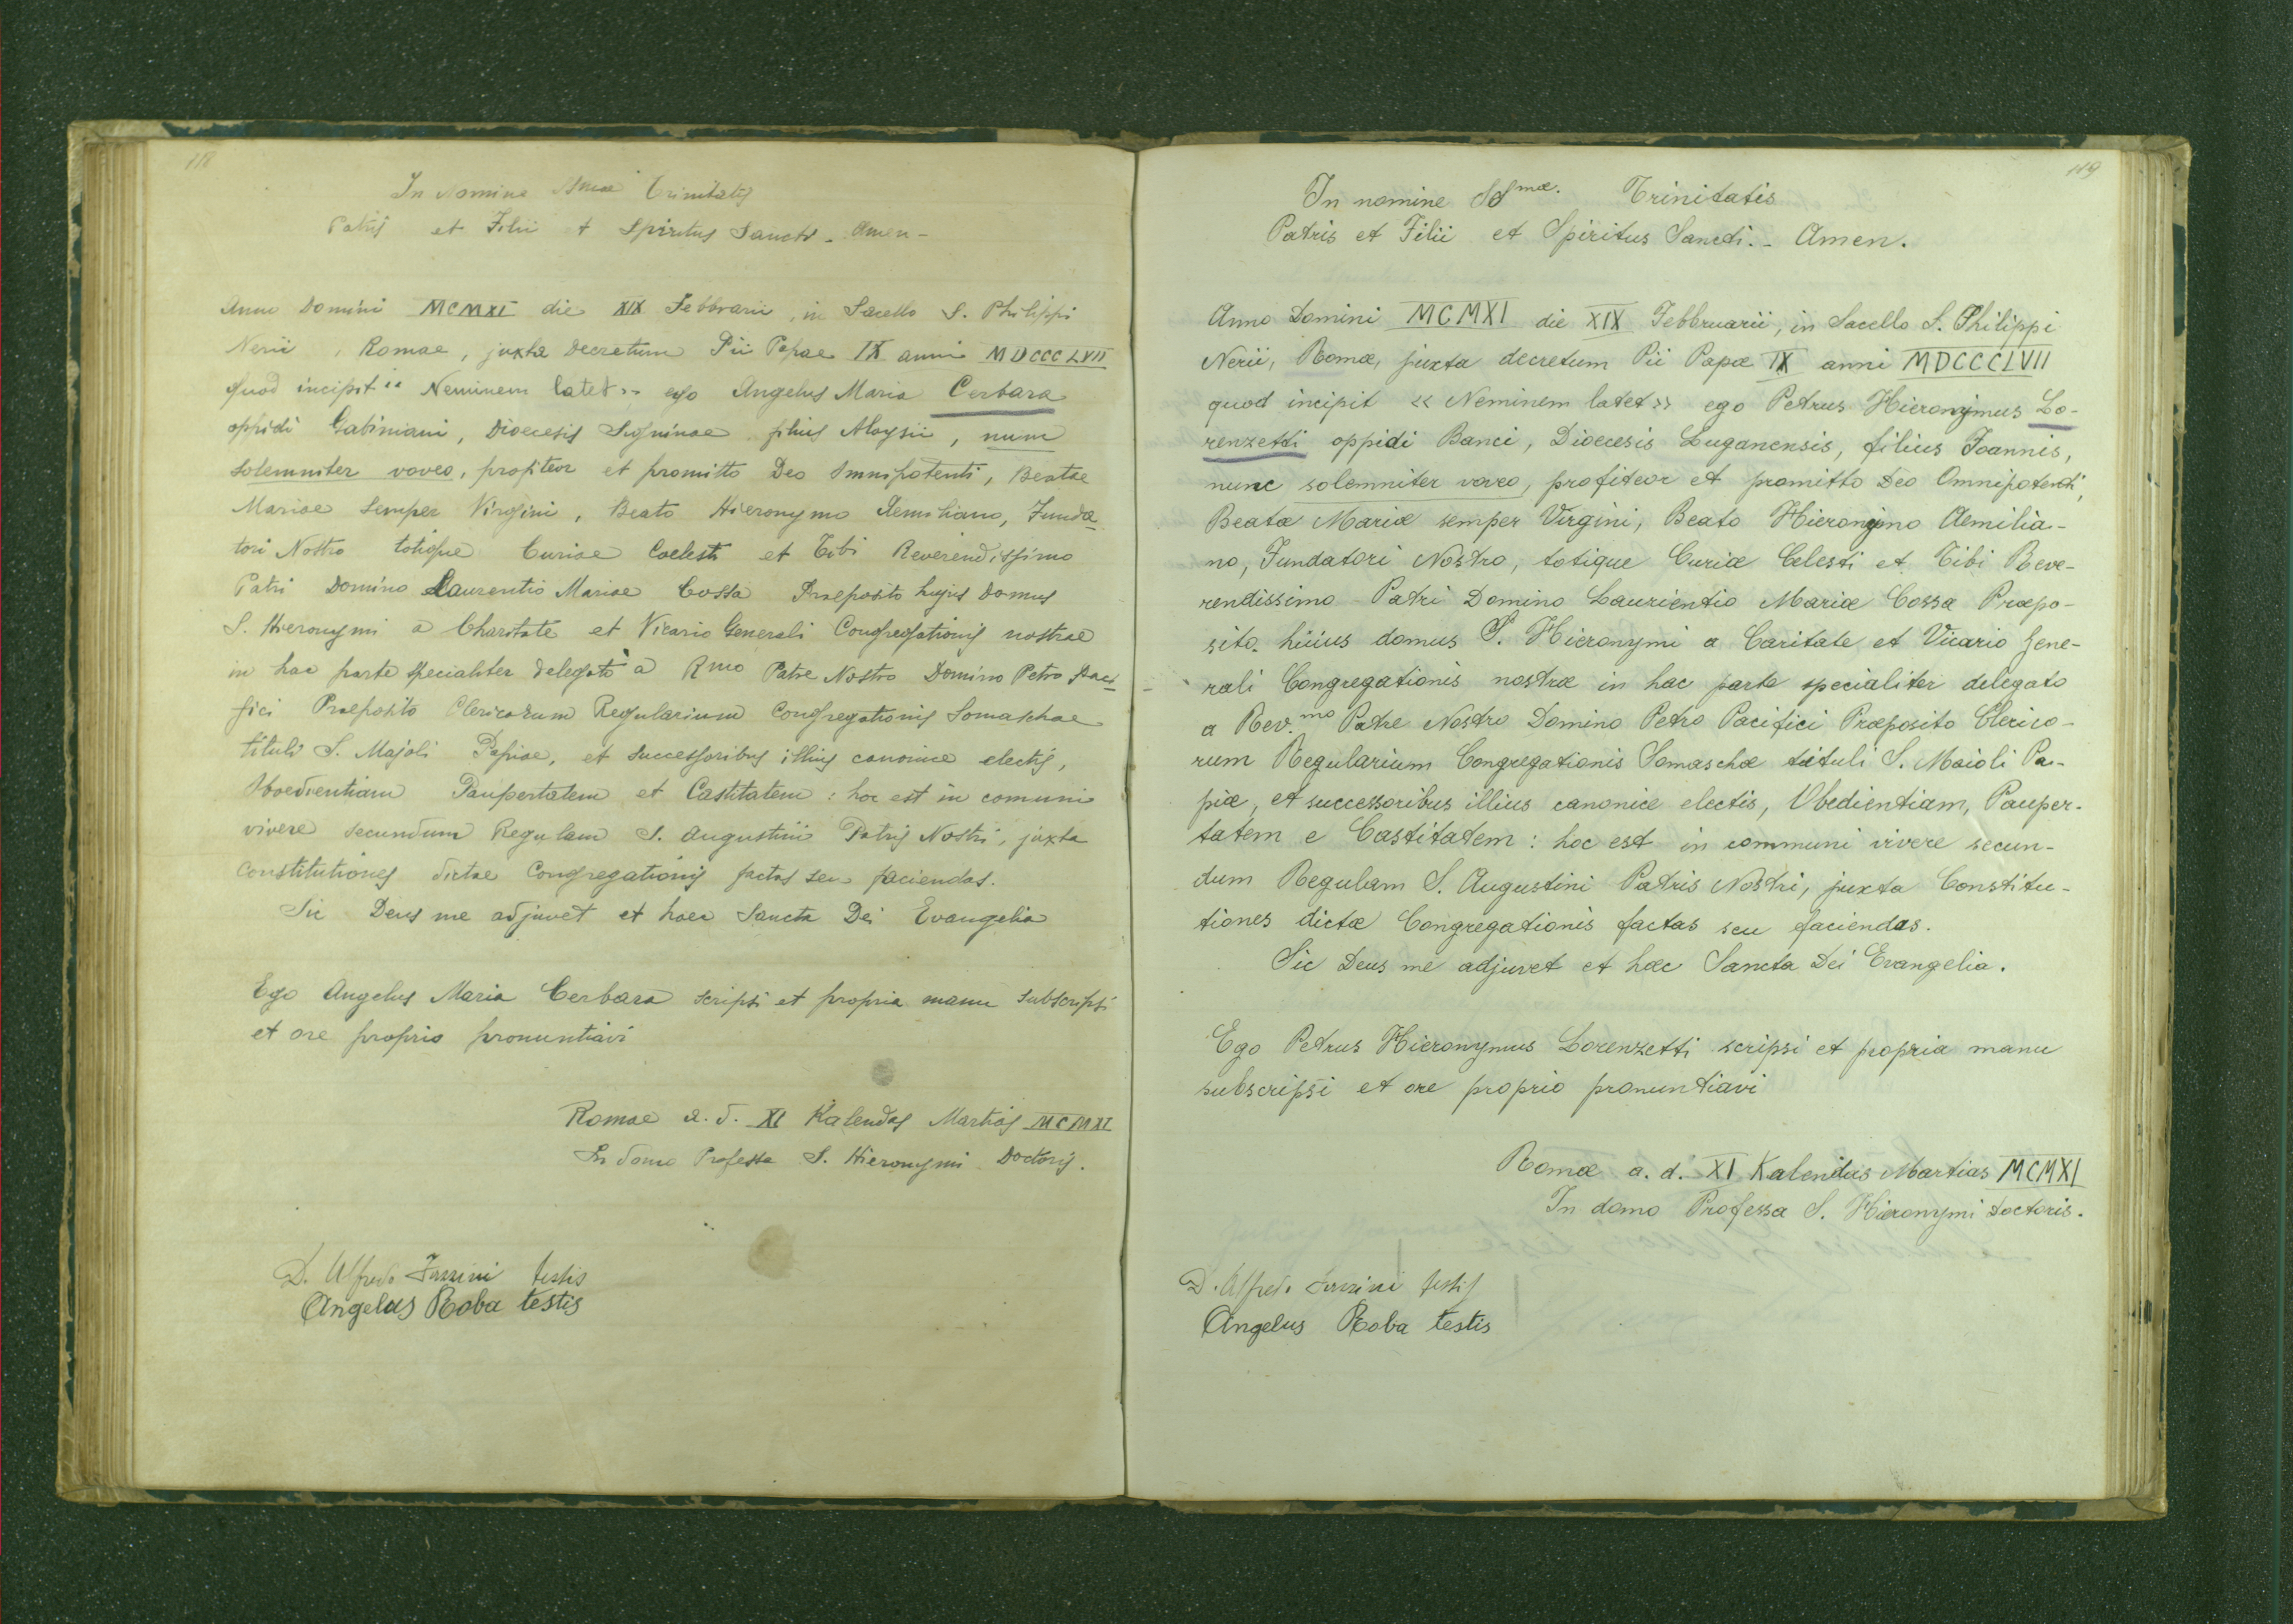 118
In Nomine SSmae Trinitatis
Patris et Filii + Spiritus Sancti - Amen -
Anno Domini MCMXI die XIX Febbrarii, in Sacello S. Philippi
Nerii, Romae, juxta Decretum Pii Papae IX anni MDCCCLVII
quod incipit " Neminem latet " ego Angelus Maria Cerbara
oppidi Gabiniani, Dioecesis Signinae filius Aloysii, nunc
solemniter voveo, profiteor et promitto Deo Omnipotenti, Beatae
Mariae Semper Virgini, Beato Hieronymo Aemiliano, Funda-
tori Nostro totique Curiae Coelesti et Tibi Reverendissimo
Patri Domino Laurentio Mariae Cossa Praeposito hujus Domus
S. Hieronymi a Charitate et Vicario Generali Congregationis nostrae
in hac parte specialiter delegato a Rmo Patre Nostro Domino Petro Paci-
fici Praeposito Clericorum Regularium Congregationis Somaschae
tituli S. Majoli Papiae, et successoribus illius canonice electis,
Oboedientiam Paupertatem et Castitatem : hoc est in comuni
vivere secundum Regulam S. Augustini Patris Nostri, juxta
Constitutiones dictae Congregationis factas seu faciendas.
Sic Deus me adjuvet et haec Sancta Dei Evangelia
Ego Angelus Maria Cerbara scripsi et propria manu subscripsi
et ore proprio pronuntiavi
Romae a. d. XI Kalendas Martias MCMXI
In domo Professa S. Hieronymi Doctoris.
D. Alfredo testis
Angelus Roba testis
119
In nomine SSmæ. Trinitatis
Patris et Filii et Spiritus Sancti. - Amen.
Anno Domini MCMXI die XIX Febbruarii, in Sacello S. Philippi
Nerii, Romæ, juxta decretum Pii Papæ IX anni MDCCCLVII
quod incipit « Neminem latet » ego Petrus Hieronymus Lo-
renzetti oppidi Banci, Dioecesis Luganensis, filius Joannis,
nunc solemniter voveo, profiteor et promitto Deo Omnipotenti,
Beatæ Mariæ semper Virgini, Beato Hieronymo Aemilia-
no, Fundatori Nostro, totique Curiæ Celesti et Tibi Reve-
rendissimo Patri Domino Laurientio Mariæ Cossa Præpo-
sito huius domus S. Hieronymi a Caritate et Vicario Gene-
rali Congregationis nostræ in hac parte specialiter delegato
a Rev.mo Patre Nostro Domino Petro Pacifici Præposito Clerico-
rum Regularium Congregationis Somaschæ tituli S. Maioli Pa-
piæ, et successoribus illius canonice electis, Obedientiam, Pauper-
tatem e Castitatem : hoc est in communi vivere secun-
dum Regulam S. Augustini Patris Nostri, juxta Constitu-
tiones dictæ Congregationis factas seu faciendas.
Sic Deus me adjuvet et hæc Sancta Dei Evangelia.
Ego Petrus Hieronymus Lorenzetti scripsi et propria manu
subscripsi et ore proprio pronuntiavi
Romæ a. d. XI Kalendas Martias MCMXI
In domo Professa S. Hieronymi Doctoris.
D. Alfredo testis
Angelus Roba testis